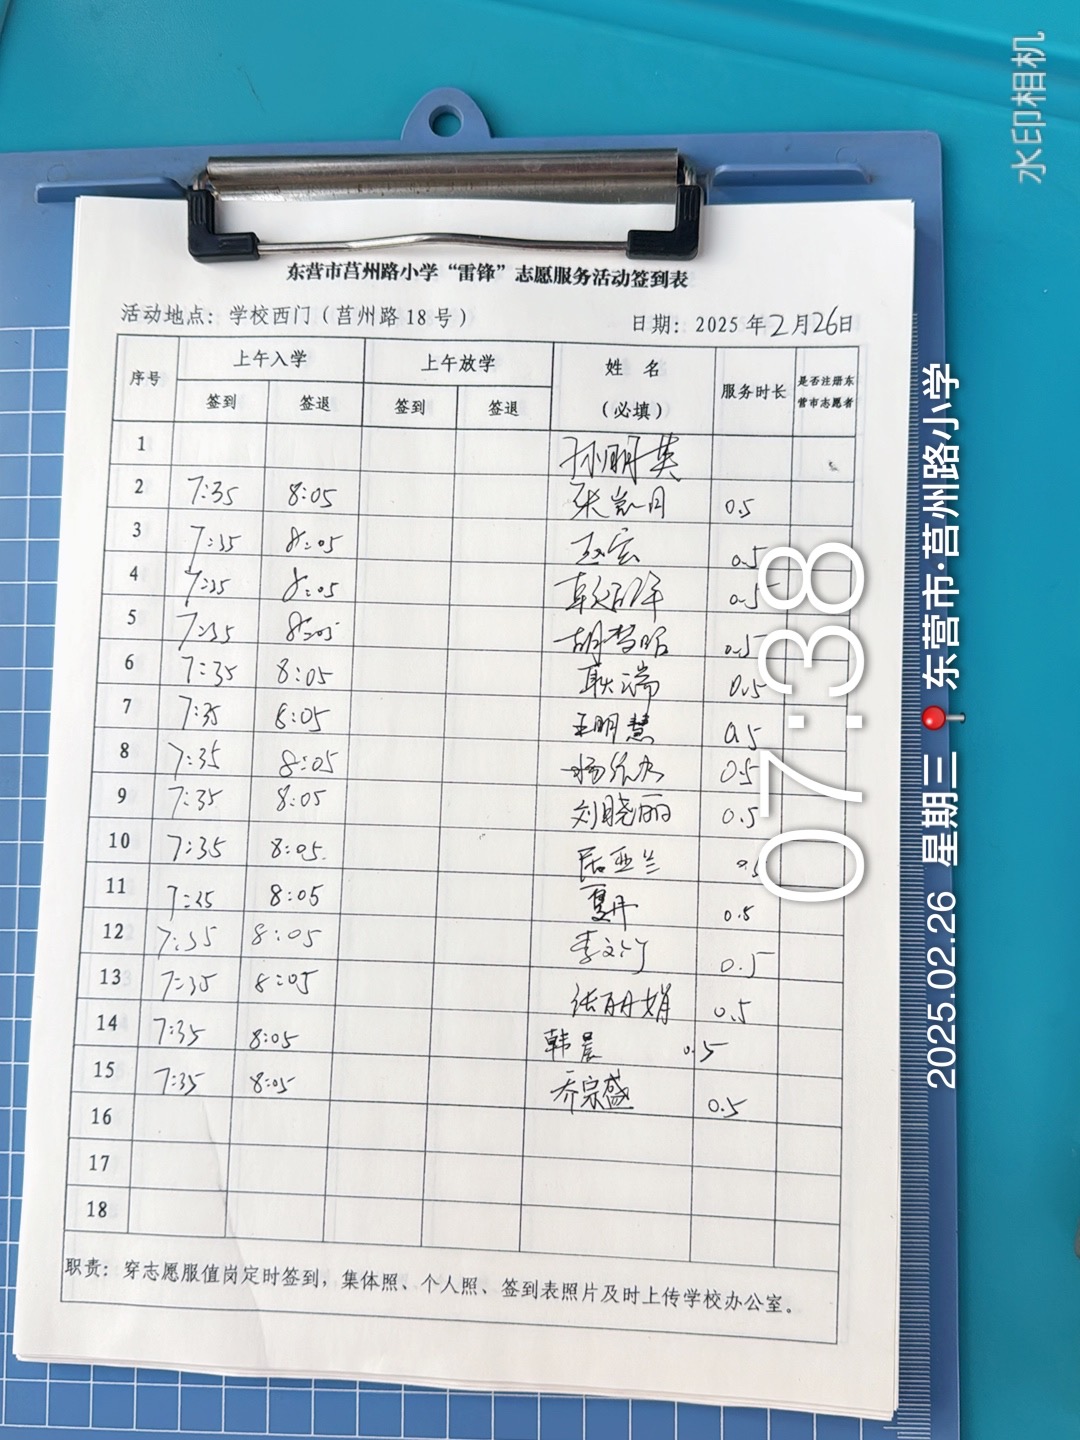 水印相机
东营市莒州路小学“雷锋”志愿服务活动签到表
活动地点：学校西门（莒州路18号）
日期：2025年2月26日
序号 上午入学 上午放学 姓名（必填） 服务时长 是否注册东营市志愿者
签到 签退 签到 签退
1 孙明英
2 7:35 8:05 张凯月 0.5
3 7:35 8:05 0.5
4 7:35 8:05 0.5
5 7:35 8:05 0.5
6 7:35 8:05 耿端 0.5
7 7:35 8:05 王明慧 0.5
8 7:35 8:05 0.5
9 7:35 8:05 刘晓丽 0.5
10 7:35 8:05. 0.5
11 7:35 8:05 夏丹 0.5
12 7:35 8:05 0.5
13 7:35 8:05 张丽娟 0.5
14 7:35 8:05 韩晨 0.5
15 7:35 8:05 乔宗盛 0.5
16
17
18
职责：穿志愿服值岗定时签到，集体照、个人照、签到表照片及时上传学校办公室。
07:38
2025.02.26 星期三 东营市·莒州路小学